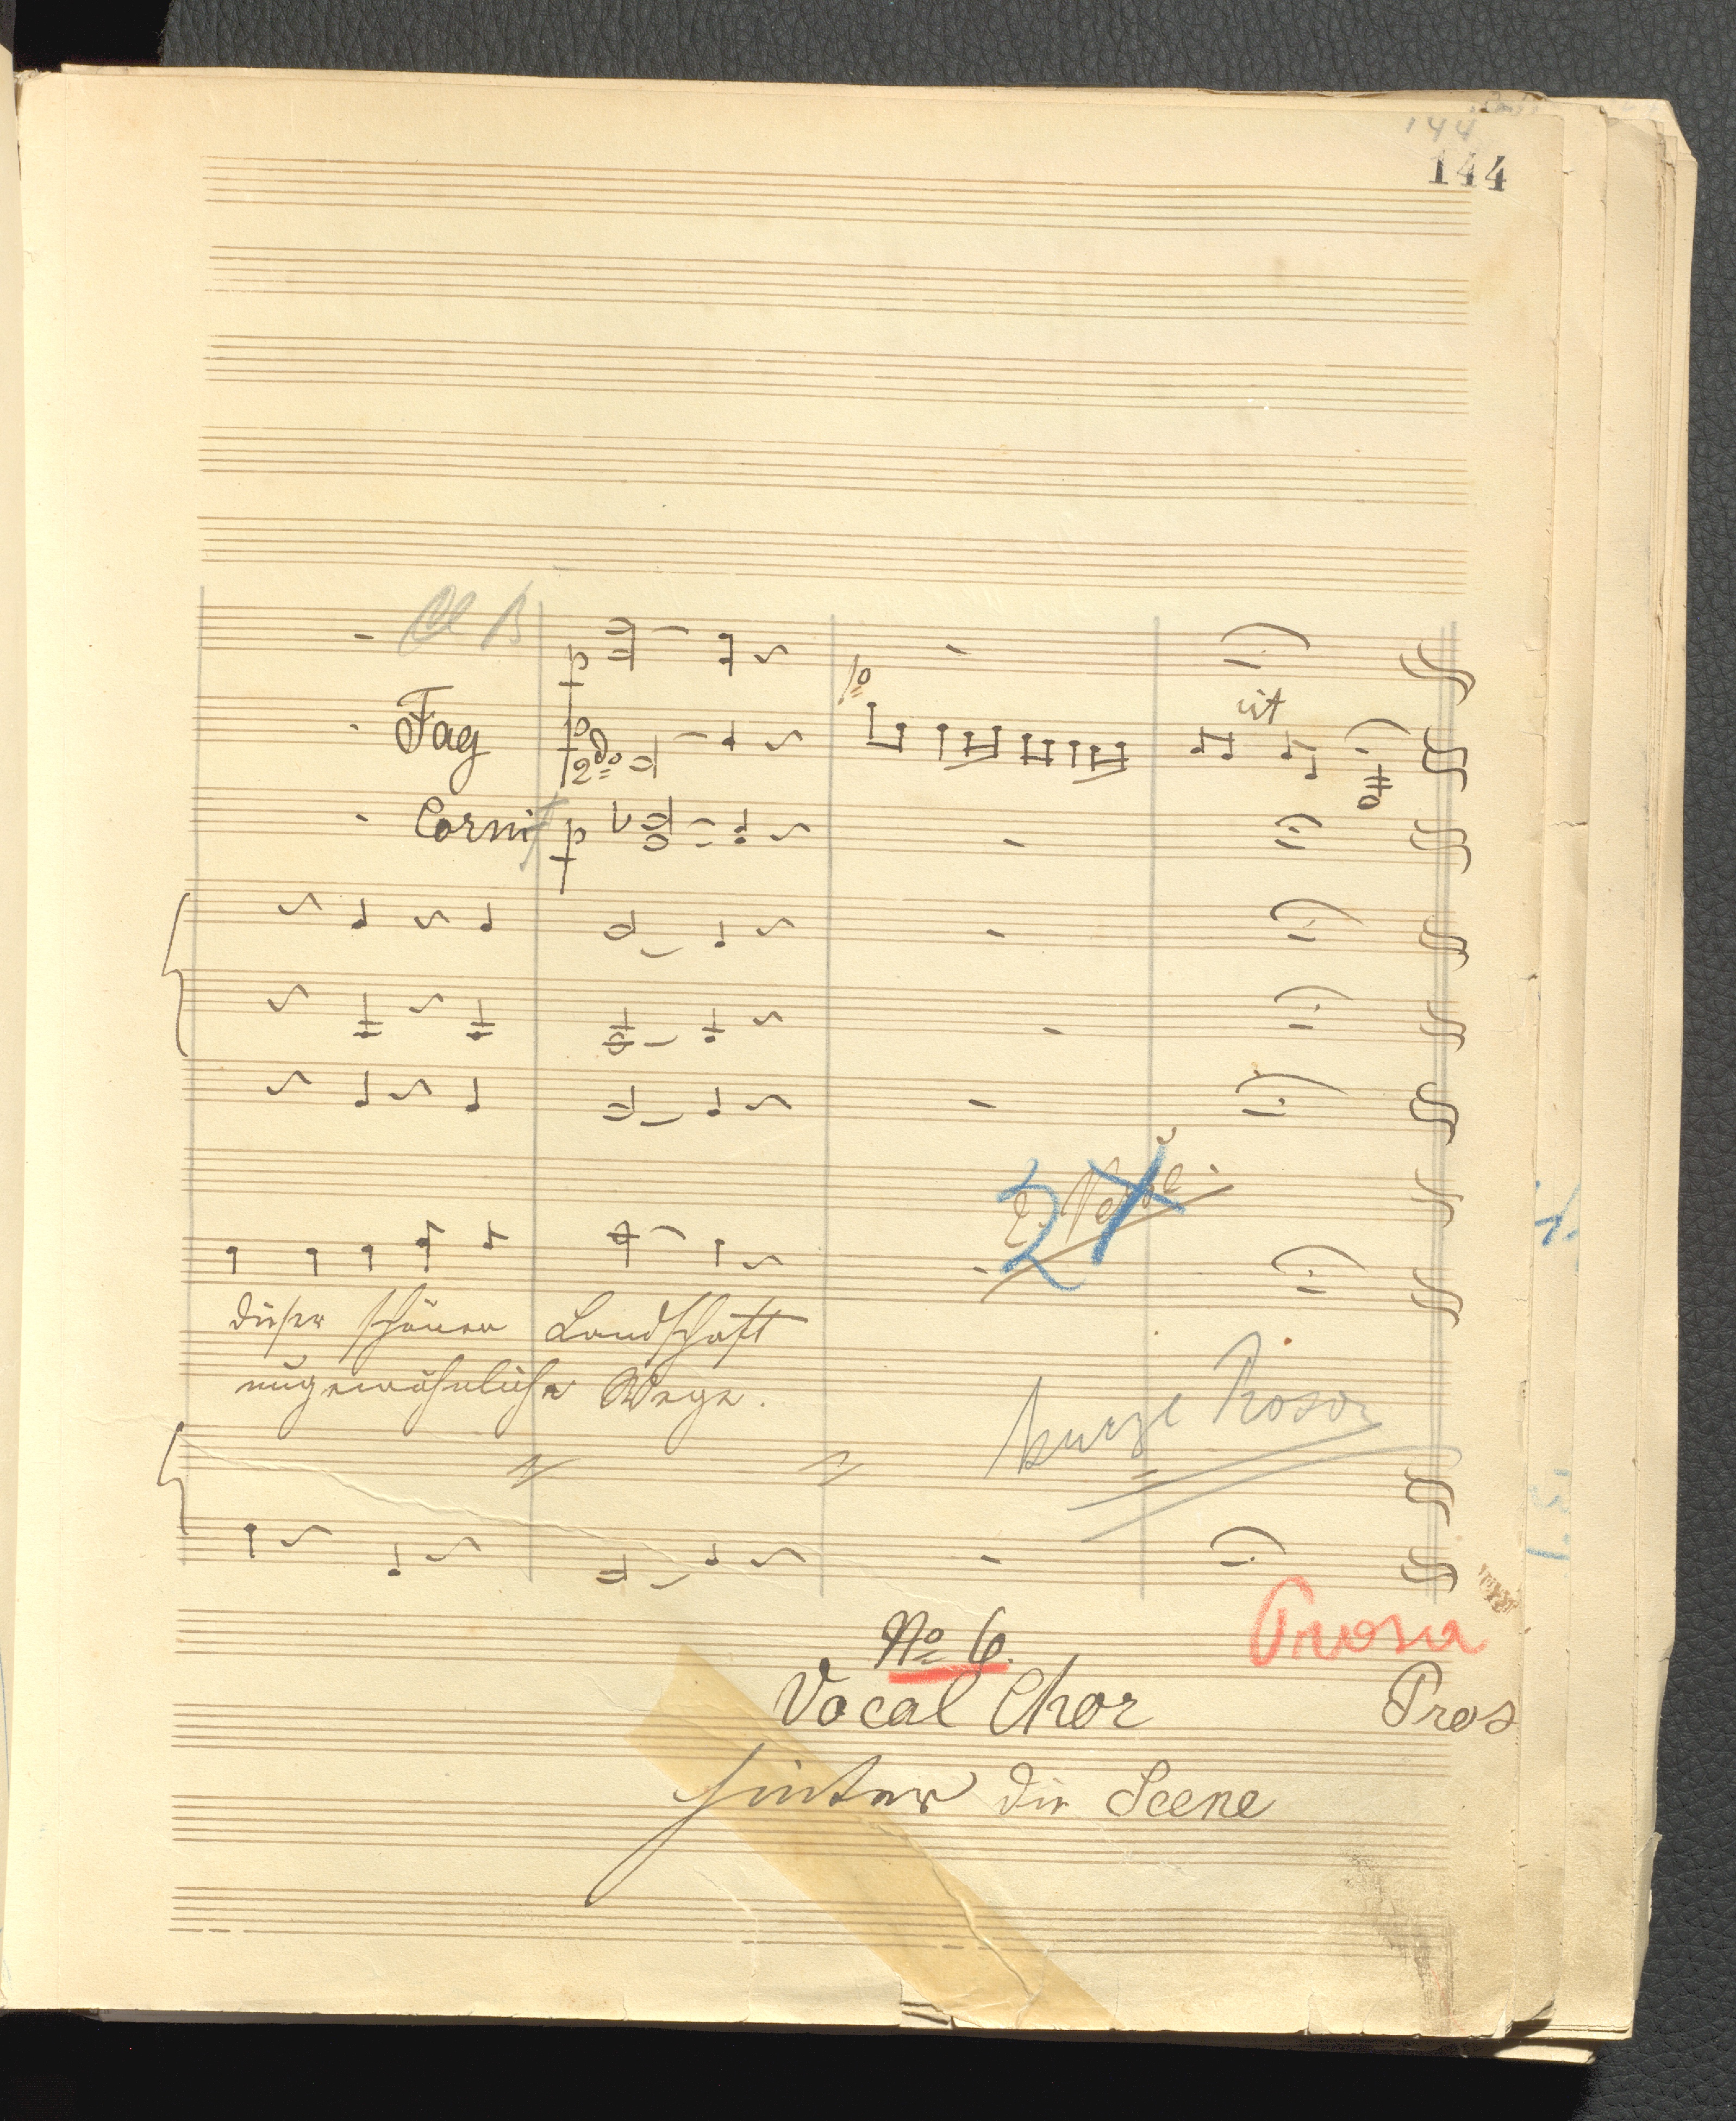 144
144
Cl B
p
1o
Fag
p
2do
rit
Corni
p
2
dieser schönen Landschaft
ungewöhnliche Wege.
kurze Prosa
No 6.
Prosa
Vocal Chor
Pros
hinter die Scene